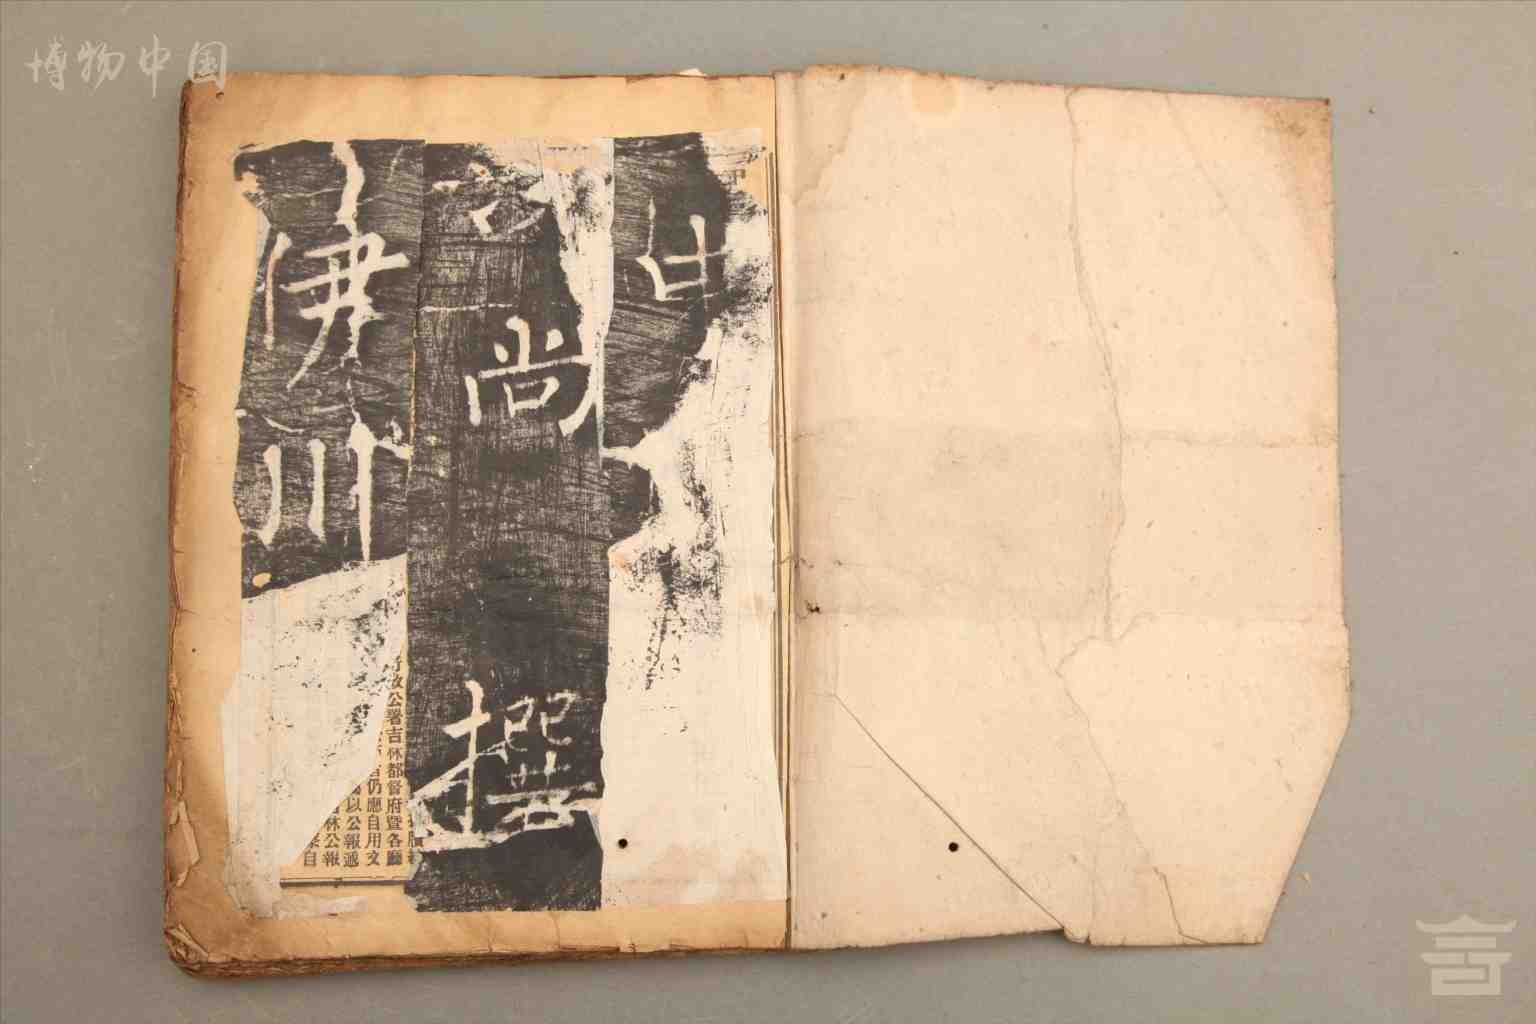 博物中国
中
尚撰
伊川
行政公署吉林都督府暨各廳
仍應自用文
以公報遞
林公報
自